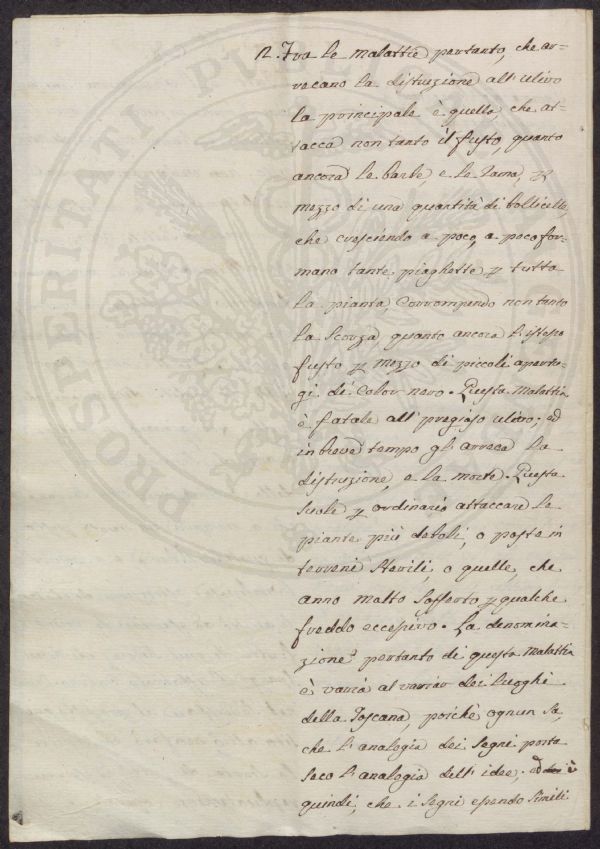 12. Fra le malattie pertanto, che ar=
recano la distruzione all'ulivo
la principale è quella, che at=
tacca non tanto il fusto, quanto
ancora le barbe, e le rama, p
mezzo di una quantità di bollicelle,
che crescendo a poco, a poco for=
mano tante piaghette p tutta
la pianta, corrompendo non tanto
la scorza, quanto ancora l'istesso
fusto p mezzo di piccoli apertu=
gi di color nero. Questa malattia
è fatale all'pregiaso ulivo; ed
in breve tempo gl'arreca la
distruzione, e la morte. Questa
suole p ordinario attaccare le
piante più deboli, o poste in
terreni sterili, o quelle, che
anno molto sofferto p qualche
freddo eccessivo. La denomina=
zione pertanto di questa malattia
è varia al variar dei luoghi
della Toscana, poichè ognun sa,
che l'analogia dei segni porta
seco l'analogia dell'idee. è
quindi, che i segni essendo simili
PROSPERITATI PUBLICAE